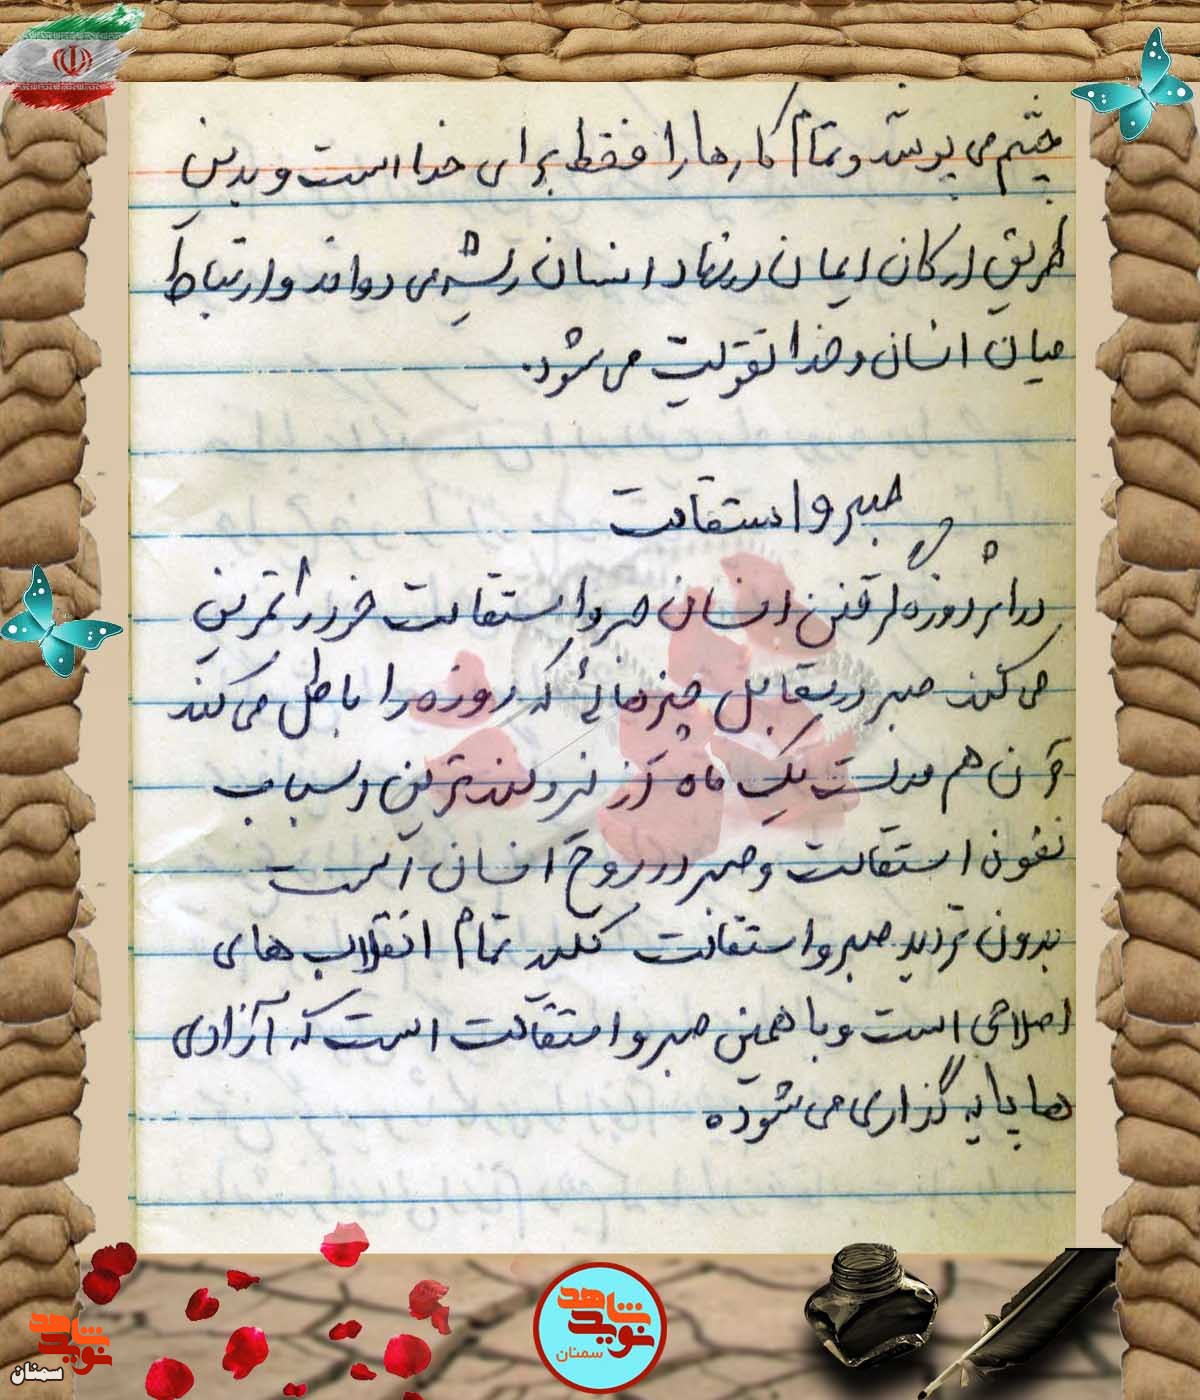 چشم می پوشد و تمام کارها را فقط برای خدا است و بدین
طریق ارکان ایمان در نهاد انسان ریشه می دواند و ارتباط
میان انسان و خدا تقویت می شود.
صبر و استقامت
در اثر روزه گرفتن انسان صبر و استقامت خود را تمرین
می کند صبر در مقابل چیزهائی که روزه را باطل می کند
آن هم مدت یک ماه از نیرومندترین اسباب
نفوذ استقامت و صبر در روح انسان است
بدون تردید صبر و استقامت کلید تمام انقلاب های
اصلاحی است و با همین صبر و استقامت است که آزادی
ها پایه گذاری می شود
نوید شاهد
سمنان
نوید شاهد
سمنان